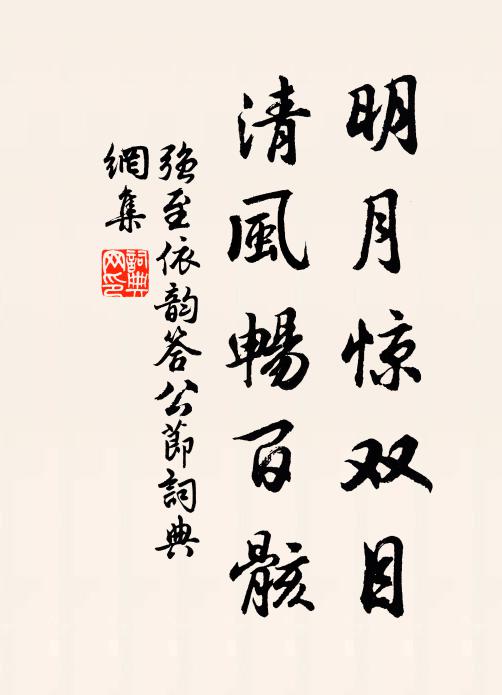 明月惊双目
清風暢百骸
强至依韵答公節詞典
網集
詞典网印